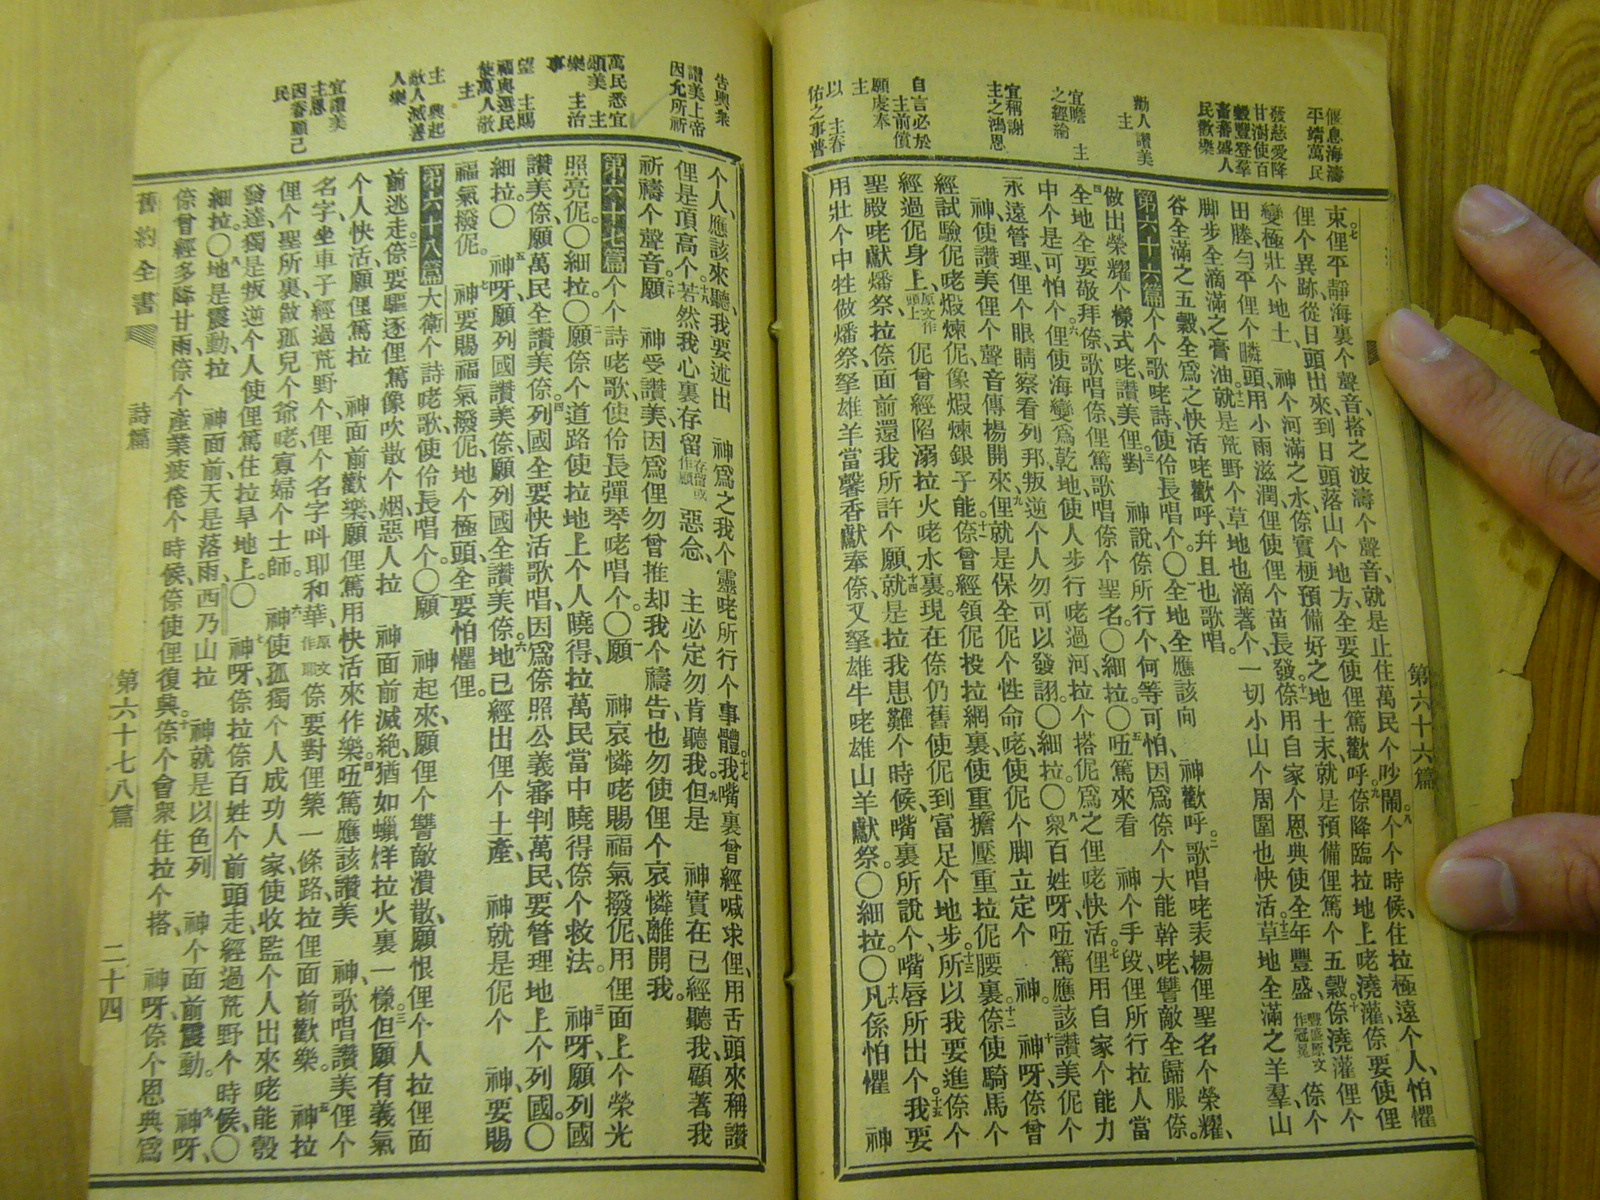 偃息海濤
平靖萬民
發慈愛降
甘澍使百
穀豐登羣
畜蕃盛人
民歡樂
勸人讚美
主
宜瞻 主
之經綸
宜稱謝
主之鴻恩
自言必於
主前償
願虔奉
主
以 主眷
佑之事普
第六十六篇
東俚平靜海裏个聲音、搭之波濤个聲音、就是止住萬民个吵鬧。个个時候、住拉極遠个人、怕懼
俚个異跡、從日頭出來、到日頭落山个地方、全要使俚篤歡呼。倷降臨拉地上咾澆灌、倷要使俚
變極壯个地土、 神个河滿之水、倷實梗預備好之地土末、就是預備俚篤个五穀、倷澆灌俚个
田塍、勻平俚个瞵頭、用小雨滋潤俚、使俚个苗長發。倷用自家个恩典、使全年豐盛、豐盛原文作冠冕倷个
脚步全滴滿之膏油。就是荒野个草地也滴著个、一切小山个周圍也快活。草地全滿之羊羣、山
谷全滿之五穀、全爲之快活咾歡呼、幷且也歌唱。
第六十六篇 个个歌咾詩、使伶長唱个〇全地全應該向 神歡呼。歌唱咾表揚俚聖名个榮耀、
做出榮耀个樣式咾讚美俚。對 神說、倷所行个、何等可怕、因爲倷个大能幹咾、讐敵全歸服倷。
全地全要敬拜倷、歌唱倷、俚篤歌唱倷个聖名。〇細拉。〇㕶篤來看 神个手段、俚所行拉人當
中个是可怕个。俚使海變爲乾地、使人步行咾過河、拉个搭伲爲之俚咾快活。俚用自家个能力
永遠管理、俚个眼睛察看列邦、叛逆个人勿可以發詡。〇細拉。〇衆百姓呀、㕶篤應該讚美伲个
神、使讚美俚个聲音傳楊開來。俚就是保全伲个性命咾、使伲个脚立定个 神。 神呀、倷曾
經試驗伲咾煅煉伲、像煅煉銀子能。倷曾經領伲投拉網裏、使重擔壓重拉伲腰裏。倷使騎馬个
經過伲身上、原文作頭上伲曾經陷溺拉火咾水裏。現在倷仍舊使伲到富足个地步。所以我要進倷个
聖殿咾獻燔祭、拉倷面前還我所許个願、就是拉我患難个時候、嘴裏所說个、嘴唇所出个。我要
用壯个中牲做燔祭、拏雄羊當馨香獻奉倷、又拏雄牛咾雄山羊獻祭。〇細拉。〇凡係怕懼 神
告與衆
讚美上帝
因允所祈
萬民悉宜
頌美 主
樂 主治
事
望 主賜
福與選民
使萬人敬
主
主 興起
敵人滅善
人樂
宜讚美
主恩
因眷顧己
民
个人、應該來聽、我要述出 神爲之我个靈咾所行个事體。我嘴裏曾經喊求俚、用舌頭來稱讚
俚是頂高个。若然我心裏存留存留或作顧惡念、 主必定勿肯聽我。但是 神實在已經聽我、顧著我
祈禱个聲音。願 神受讚美、因爲俚勿曾推却我个禱告、也勿使俚个哀憐離開我。
第六十七篇 个个詩咾歌、使伶長彈琴咾唱个〇願 神哀憐咾賜福氣撥伲、用俚面上个榮光
照亮伲。〇細拉。〇願倷个道路使拉地上个人曉得、拉萬民當中曉得倷个救法。 神呀、願列國
讚美倷、願萬民全讚美倷。列國全要快活歌唱、因爲倷照公義審判萬民、要管理地上个列國。〇
細拉。〇 神呀、願列國讚美倷、願列國全讚美倷。地已經出俚个土產、 神就是伲个 神、要賜
福氣撥伲。 神要賜福氣撥伲、地个極頭全要怕懼俚。
第六十八篇 大衛个詩咾歌、使伶長唱个。〇願 神起來、願俚个讐敵潰散、願恨俚个人拉俚面
前逃走。倷要驅逐俚篤、像吹散个烟、惡人拉 神面前滅絶、猶如蠟烊拉火裏一樣。但願有義氣
个人快活、願俚篤拉 神面前歡樂、願俚篤用快活來作樂。㕶篤應該讚美 神、歌唱讚美俚个
名字、坐車子經過荒野个、俚个名字呌耶和華、倷要對俚築一條路、拉俚面前歡樂。 神拉
俚个聖所裏、做孤兒个爺咾、寡婦个士師。 神使孤獨个人成功人家、使收監个人出來咾能彀
發達、獨是叛逆个人、使俚篤住拉旱地上。〇 神呀、倷拉倷百姓个前頭走、經過荒野个時候、〇
細拉。〇地是震動、拉 神面前、天是落雨、西乃山拉 神就是以色列 神个面前震動。 神呀、
倷曾經多降甘雨、倷个產業疲倦个時候、倷使俚復興。倷个會衆住拉个搭、 神呀、倷个恩典爲
舊約全書
詩篇
第六十七八篇
二十四